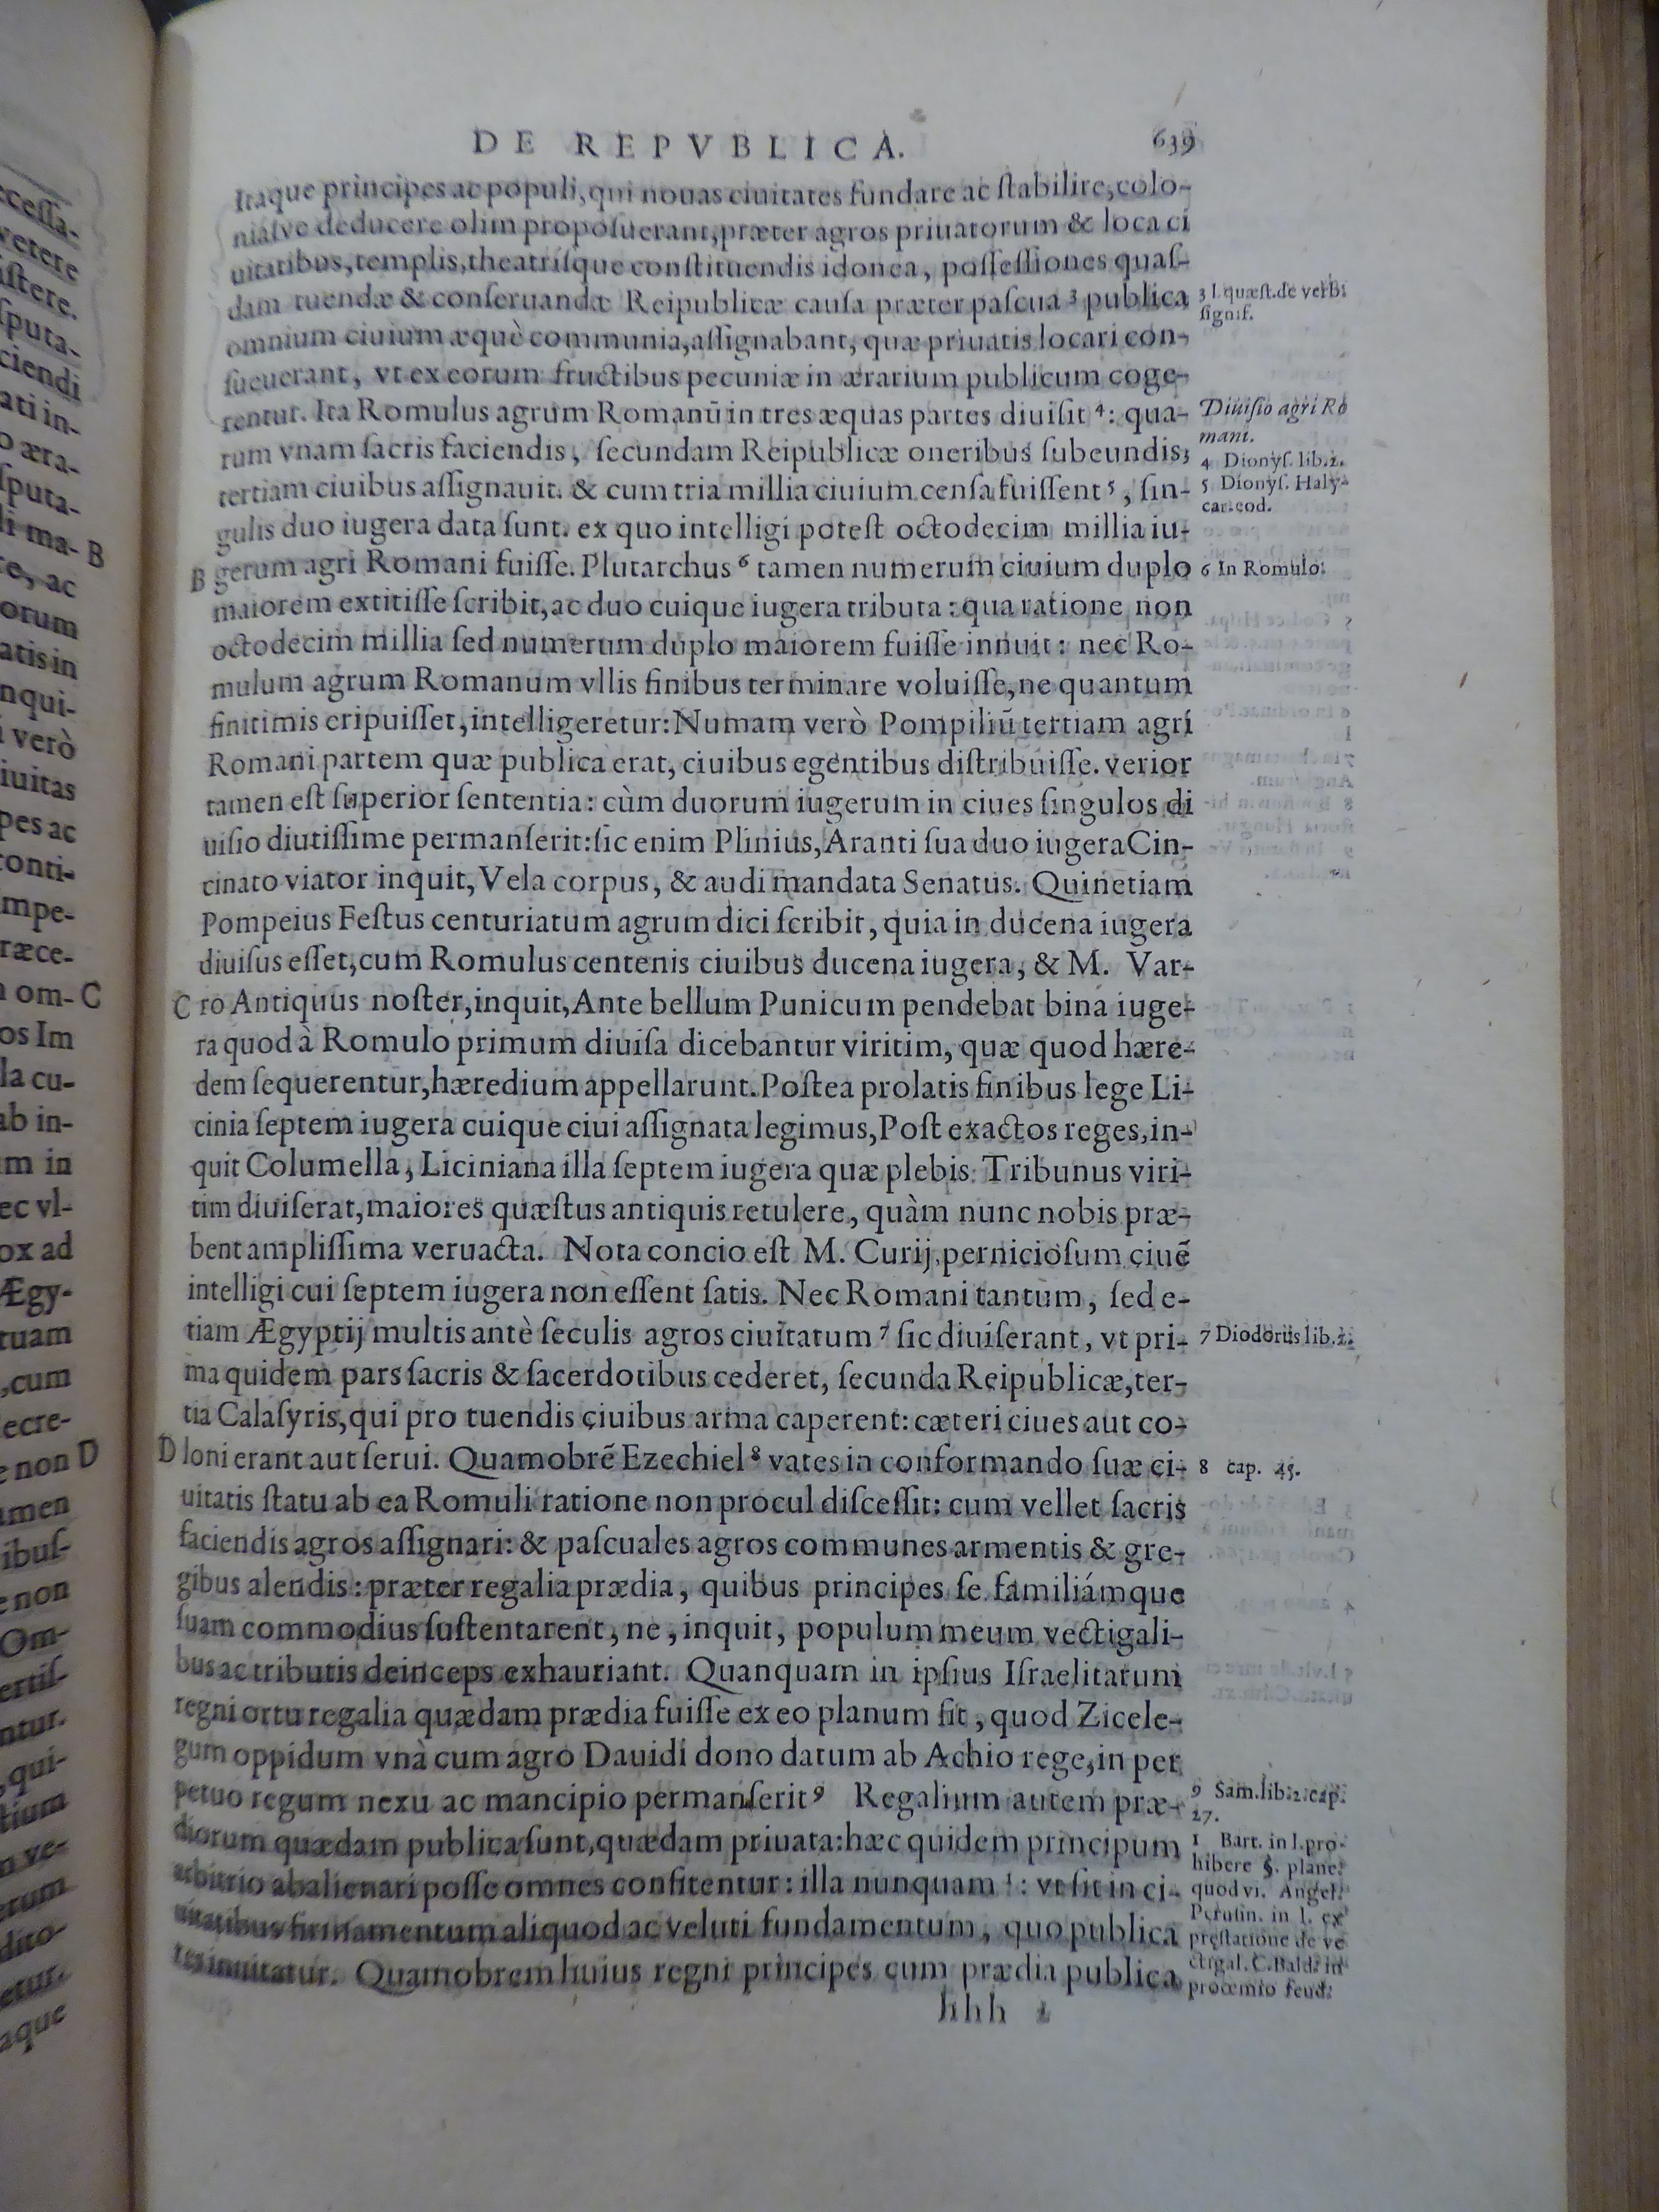 DE REPVBLICA. 639
Itaque principes ac populi, qui nouas ciuitates fundare ac ſtabilire, colo-
niáſve deducere olim propoſuerant, præter agros priuatorum & loca ci
uitatibus, templis, theatríſque conſtituendis idonea, poſſeſſiones quaſ-
dam tuendæ & conſeruandæ Reipublicæ cauſa præter paſcua ³ publica
omnium ciuium æquè communia, aſſignabant, quæ priuatis locari con-
ſueuerant, vt ex eorum fructibus pecuniæ in ærarium publicum coge-
rentur. Ita Romulus agrum Romanū in tres æquas partes diuiſit ⁴: qua-
rum vnam ſacris faciendis, ſecundam Reipublicæ oneribus ſubeundis,
tertiam ciuibus aſſignauit. & cum tria millia ciuium cenſa fuiſſent ⁵, ſin-
gulis duo iugera data ſunt. ex quo intelligi poteſt octodecim millia iu-
B gerum agri Romani fuiſſe. Plutarchus ⁶ tamen numerum ciuium duplo
maiorem extitiſſe ſcribit, ac duo cuique iugera tributa: qua ratione non
octodecim millia ſed numerum duplo maiorem fuiſſe innuit: nec Ro-
mulum agrum Romanum vllis finibus terminare voluiſſe, ne quantum
finitimis eripuiſſet, intelligeretur: Numam verò Pompiliū tertiam agri
Romani partem quæ publica erat, ciuibus egentibus diſtribuiſſe. verior
tamen eſt ſuperior ſententia: cùm duorum iugerum in ciues ſingulos di
uiſio diutiſſime permanſerit: ſic enim Plinius, Aranti ſua duo iugera Cin-
cinato viator inquit, Vela corpus, & audi mandata Senatus. Quinetiam
Pompeius Feſtus centuriatum agrum dici ſcribit, quia in ducena iugera
diuiſus eſſet, cum Romulus centenis ciuibus ducena iugera, & M. Var-
C ro Antiquus noſter, inquit, Ante bellum Punicum pendebat bina iuge-
ra quod à Romulo primum diuiſa dicebantur viritim, quæ quod hære-
dem ſequerentur, hæredium appellarunt. Poſtea prolatis finibus lege Li-
cinia ſeptem iugera cuique ciui aſſignata legimus, Poſt exactos reges, in-
quit Columella, Liciniana illa ſeptem iugera quæ plebis Tribunus viri-
tim diuiſerat, maiores quæſtus antiquis retulere, quàm nunc nobis præ-
bent ampliſſima veruacta. Nota concio eſt M. Curij, pernicioſum ciuē
intelligi cui ſeptem iugera non eſſent ſatis. Nec Romani tantum, ſed e-
tiam Ægyptij multis antè ſeculis agros ciuitatum ⁷ ſic diuiſerant, vt pri-
ma quidem pars ſacris & ſacerdotibus cederet, ſecunda Reipublicæ, ter-
tia Calaſyris, qui pro tuendis ciuibus arma caperent: cæteri ciues aut co-
D loni erant aut ſerui. Quamobrē Ezechiel ⁸ vates in conformando ſuæ ci-
uitatis ſtatu ab ea Romuli ratione non procul diſceſſit: cum vellet ſacris
faciendis agros aſſignari: & paſcuales agros communes armentis & gre-
gibus alendis: præter regalia prædia, quibus principes ſe familiámque
ſuam commodius ſuſtentarent, ne, inquit, populum meum vectigali-
bus ac tributis deinceps exhauriant. Quanquam in ipſius Iſraelitarum
regni ortu regalia quædam prædia fuiſſe ex eo planum fit, quod Zicele-
gum oppidum vnà cum agro Dauidi dono datum ab Achio rege, in per
petuo regum nexu ac mancipio permanſerit ⁹ Regalium autem præ-
diorum quædam publica ſunt, quædam priuata: hæc quidem principum
arbitrio abalienari poſſe omnes confitentur: illa nunquam ¹: vt ſit in ci-
uitatibus firmamentum aliquod ac veluti fundamentum, quo publica
res innitatur. Quamobrem huius regni principes cum prædia publica
hhh 2
3 l. quæſt. de verbi
ſignif.
Diuiſio agri Ro
mani.
4 Dionyſ. lib. 2.
5 Dionyſ. Haly-
car. eod.
6 In Romulo.
7 Diodorus lib. 2.
8 cap. 45.
9 Sam. lib. 1. cap.
27.
1 Bart. in l. pro-
hibere §. plane.
quod vi. Angel.
Peruſin. in l. ex
preſtatione de ve
ctigal. C. Bald. in
proœmio feud.